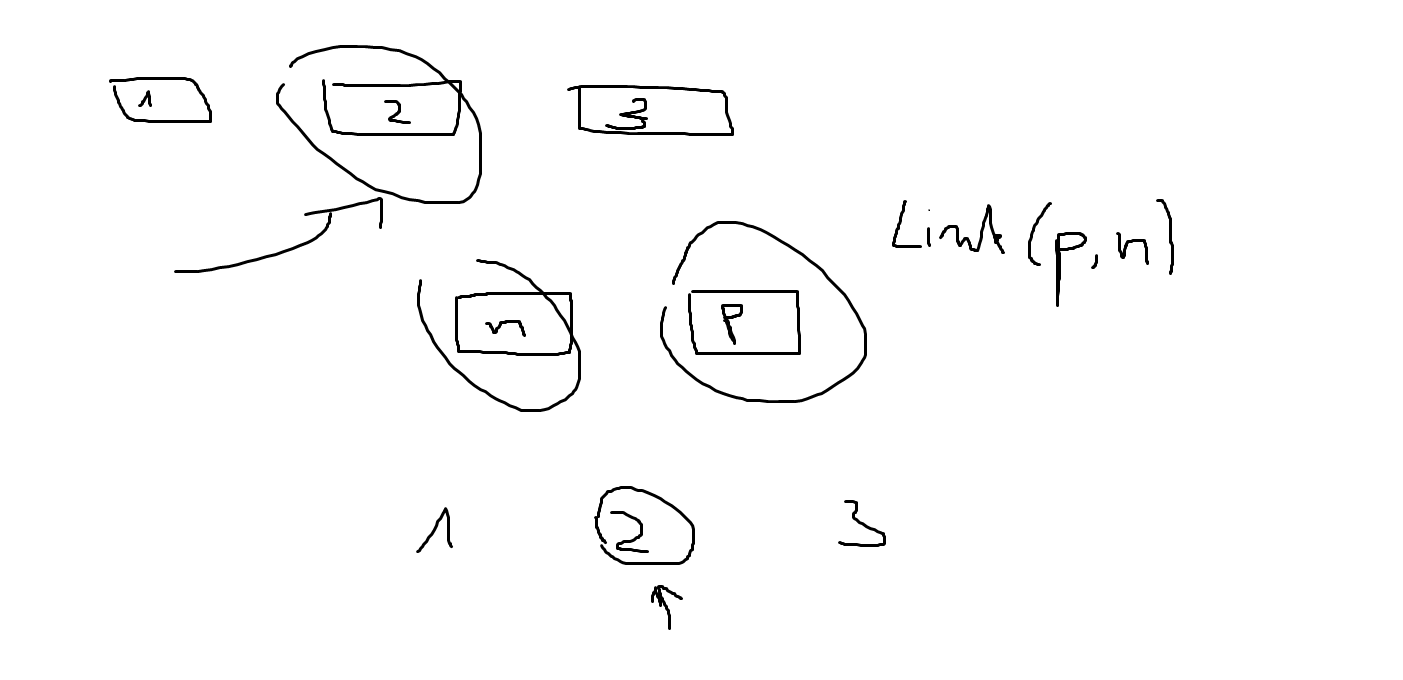 1 2 3
Link (p, n)
n P
1 2 3